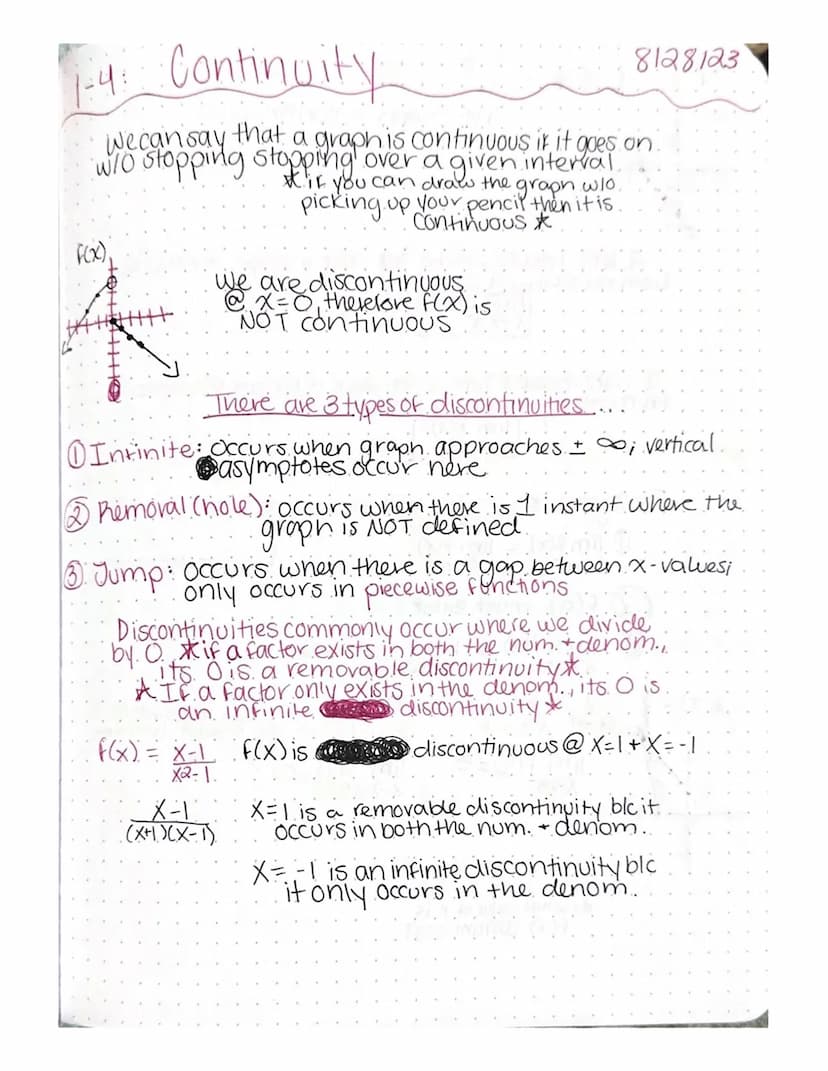 1-4: Continuity
8/28/23
We can say that a graph is continuous if it goes on
w/o stopping stopping over a given interval
*if you can draw the graph w/o
picking up your pencil then it is
continuous *
f(x)
We are discontinuous
@ x=0, therefore f(x) is
NOT continuous
There are 3 types of discontinuities...
① Infinite: occurs when graph approaches ± ∞; vertical
asymptotes occur here
② Removal (hole): occurs when there is 1 instant where the
graph is NOT defined
③ Jump: occurs when there is a gap between x-values;
only occurs in piecewise functions
Discontinuities commonly occur where we divide
by 0. *if a factor exists in both the num. + denom.,
its 0 is a removable discontinuity*
*If a factor only exists in the denom., its 0 is
an infinite discontinuity*
f(x) = x-1 / x2-1 f(x) is discontinuous @ x=1 + x=-1
x-1 / (x+1)(x-1) x=1 is a removable discontinuity b/c it
occurs in both the num. + denom.
x= -1 is an infinite discontinuity b/c
it only occurs in the denom.